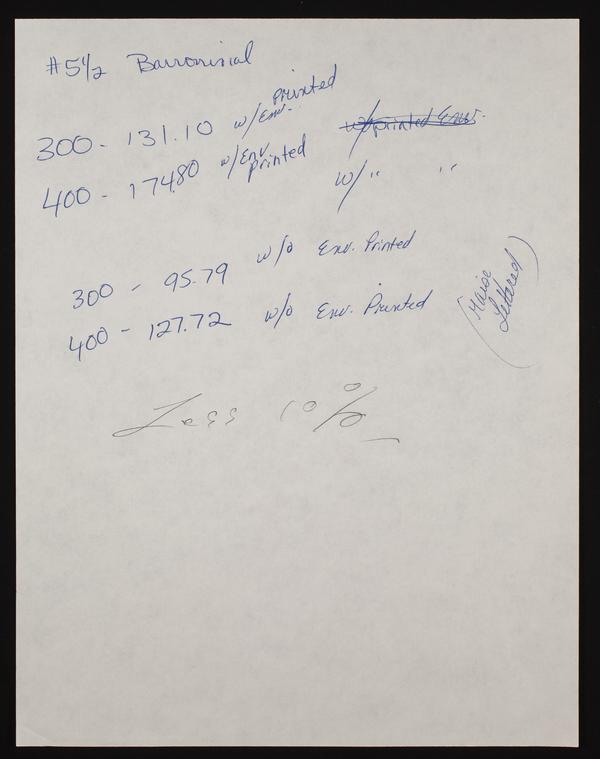 #5½ Barronisial
300 - 131.10 w/Env. Printed
w/o printed Env.
400 - 174.80 w/Env Printed
w/ " "
300 - 95.79 w/o Env. Printed
400 - 127.72 w/o Env. Printed
(Raise Lettered)
Less 10%